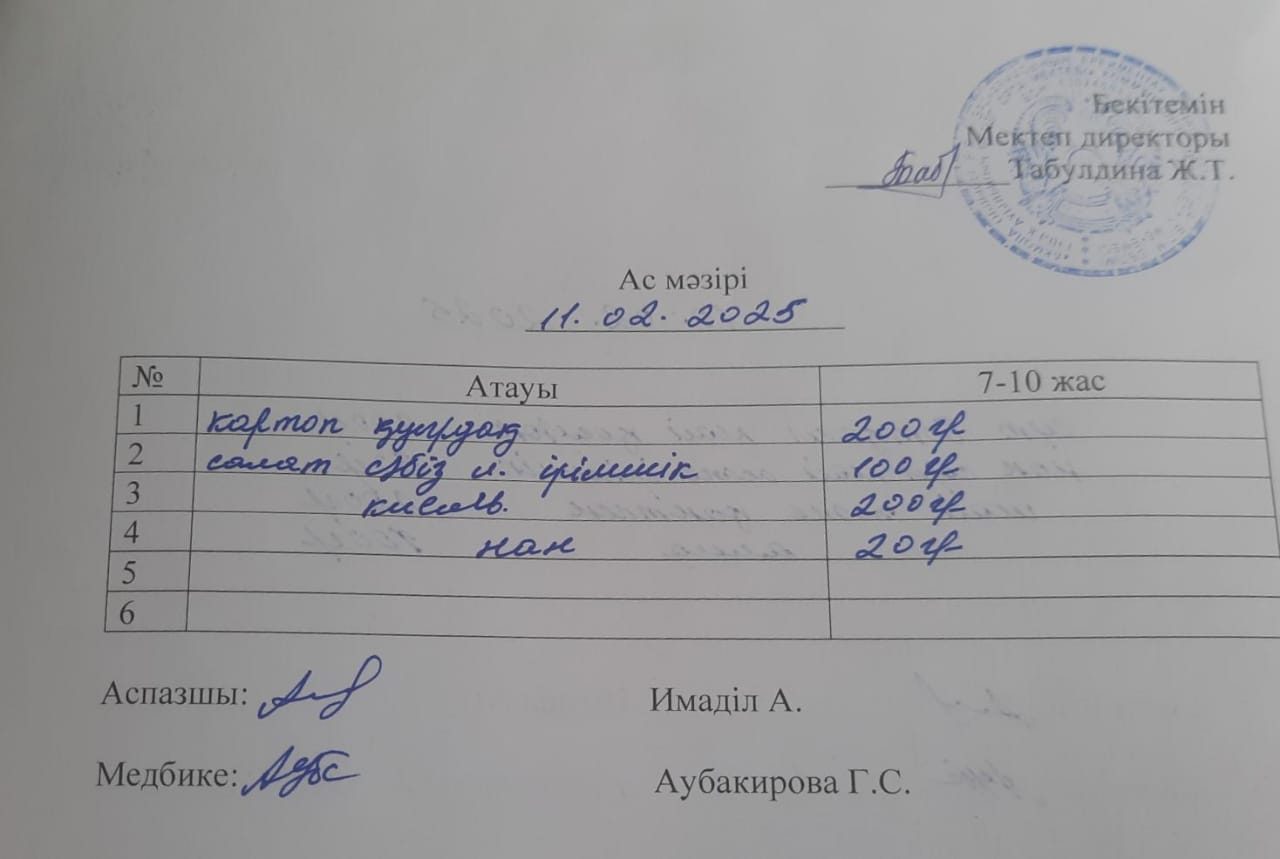 Бекітемін
Мектеп директоры
Табулдина Ж.Т.
Ас мәзірі
11. 02. 2025
№ Атауы 7-10 жас
1 картоп қуырдақ 200 гр
2 салат сәбіз м. ірімшік 100 гр
3 кисель. 200 гр
4 нан 20 гр
5
6
Аспазшы: Имаділ А.
Медбике: Аубакирова Г.С.